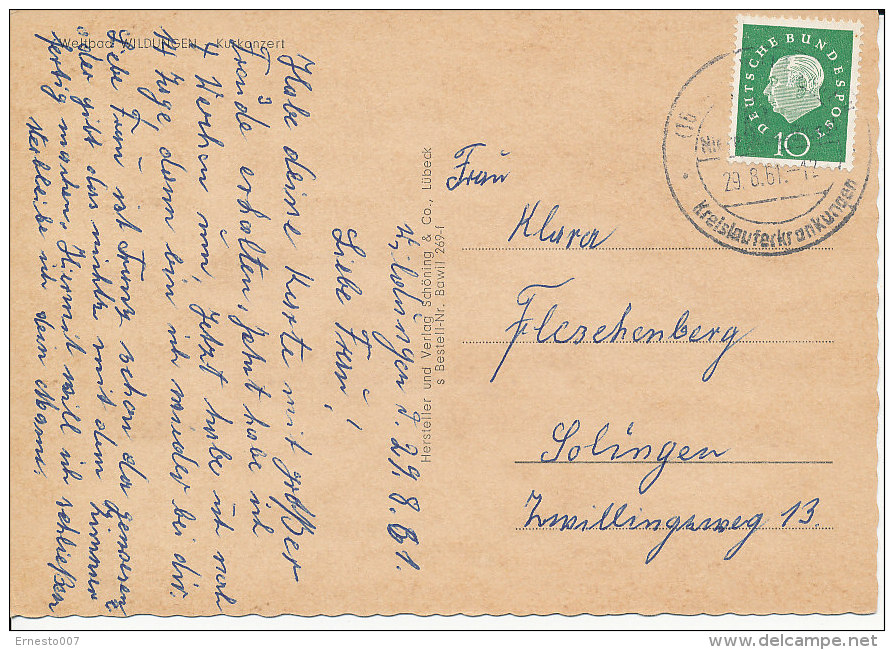 Weltbad WILDUNGEN Kurkonzert
Wildungen d. 29.8.61.
Liebe Frau,
Habe deine Karte mit großer
Freude erhalten, jetzt habe ich
4 Wochen um, Jetzt habe ich noch
14 Tage, dann bin ich wieder bei dir.
Liebe Frau ist Franz schon da gewesen
oder gibt das nichts mit dem Zimmer
fertig machen. Hiermit will ich schließen
verbleibe ich dein Mann.
Hersteller und Verlag Schöning & Co., Lübeck
s Bestell-Nr. Bawil 269-f
DEUTSCHE BUNDESPOST
10
29.8.61.-12
Kreislauferkrankungen
Frau
Klara
Fleschenberg
Solingen
Zwillingsweg 13.
Ernesto007
delcampe.net